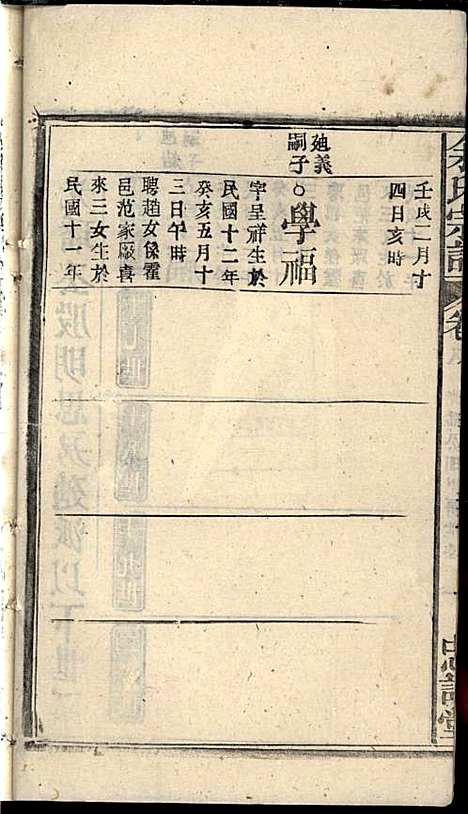 壬戌二月十
四日亥時
廸義
嗣子○學福
字呈祥生於
民國十二年
癸亥五月十
三日午時
聘趙女係霍
邑范家廠喜
來三女生於
民國十一年
氏宗譜
卷